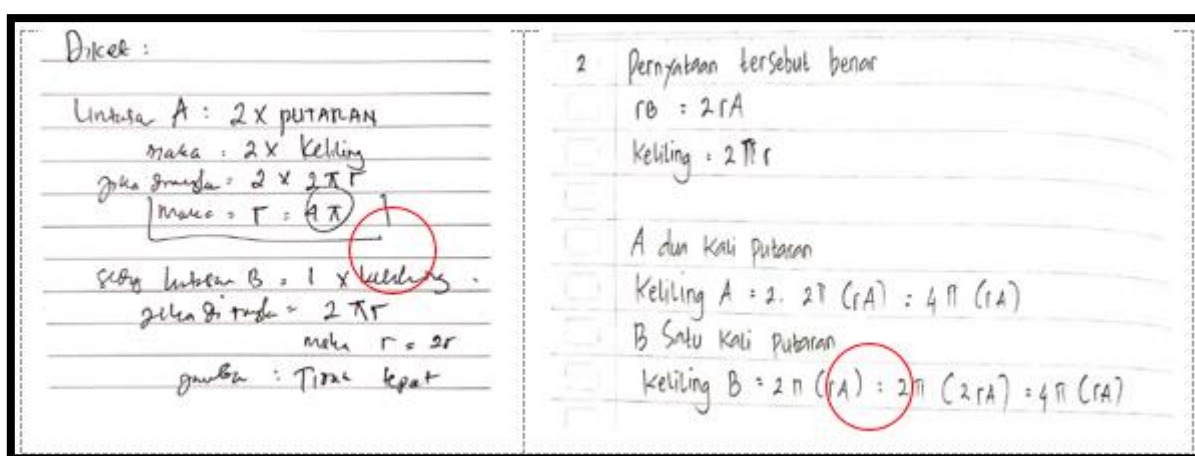 Diket :
Lintasa A : 2 x PUTARAN
maka : 2 x Keliling
jika = 2 x 2πr
maka = r = 4π
lintasan B = 1 x keliling.
jika di = 2πr
maka r = 2r
: Tidak tepat
2 Pernyataan tersebut benar
rB = 2rA
Keliling = 2πr
A dua kali Putaran
Keliling A = 2. 2π (rA) = 4π (rA)
B Satu Kali Putaran
Keliling B = 2π (rA) = 2π (2rA) = 4π (rA)